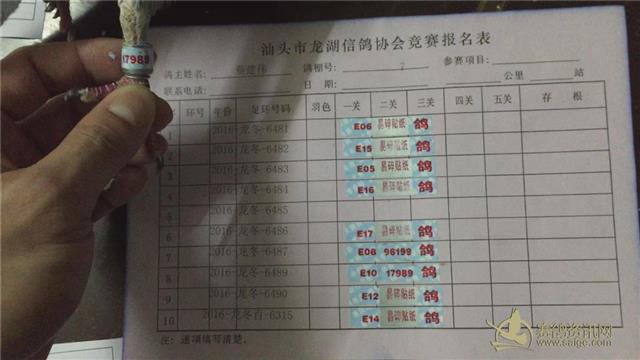 17989
汕头市龙湖信鸽协会竞赛报名表
鸽主姓名: 蔡建伟 鸽棚号: 7 参赛项目:
联系电话: 日 期: 公里 站
环号 年份 足环号码 羽色 一关 二关 三关 四关 五关 存 根
1 2016-龙冬-6481 E06 易碎贴纸 鸽
2 2016-龙冬-6482 E15 易碎贴纸 鸽
3 2016-龙冬-6483 E05 易碎贴纸 鸽
4 2016-龙冬-6484 E16 易碎贴纸 鸽
5 2016-龙冬-6485
6 2016-龙冬-6486 E17 易碎贴纸 鸽
7 2016-龙冬-6487 E08 96199 鸽
8 2016-龙冬-6489 E10 17989 鸽
9 2016-龙冬-6490 E12 易碎贴纸 鸽
10 2016-龙冬百-6315 E14 易碎贴纸 鸽
注: 逐项填写清楚。
赛鸽资讯网
www.saige.com